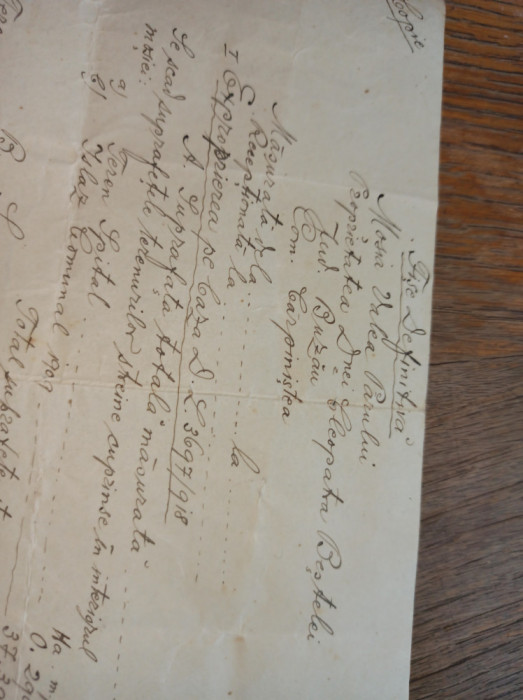 Copie
Fișe Definitivă
Moșia Valea Parului
Proprietatea Dnei Cleopatra Beștelei
Jud. Buzău
Com. Carpiniștea
Măsurată de la ........ la ........
Recepționată la ........
I Exproprierea pe baza D. L. 3697/918
A. Suprafața totală măsurată
Se scad suprafețele terenurilor streine cuprinse în interiorul
moșiei:
Ha m.
a) Teren Spital 0. 29
b) Islaz Comunal 37.
Total suprafețele